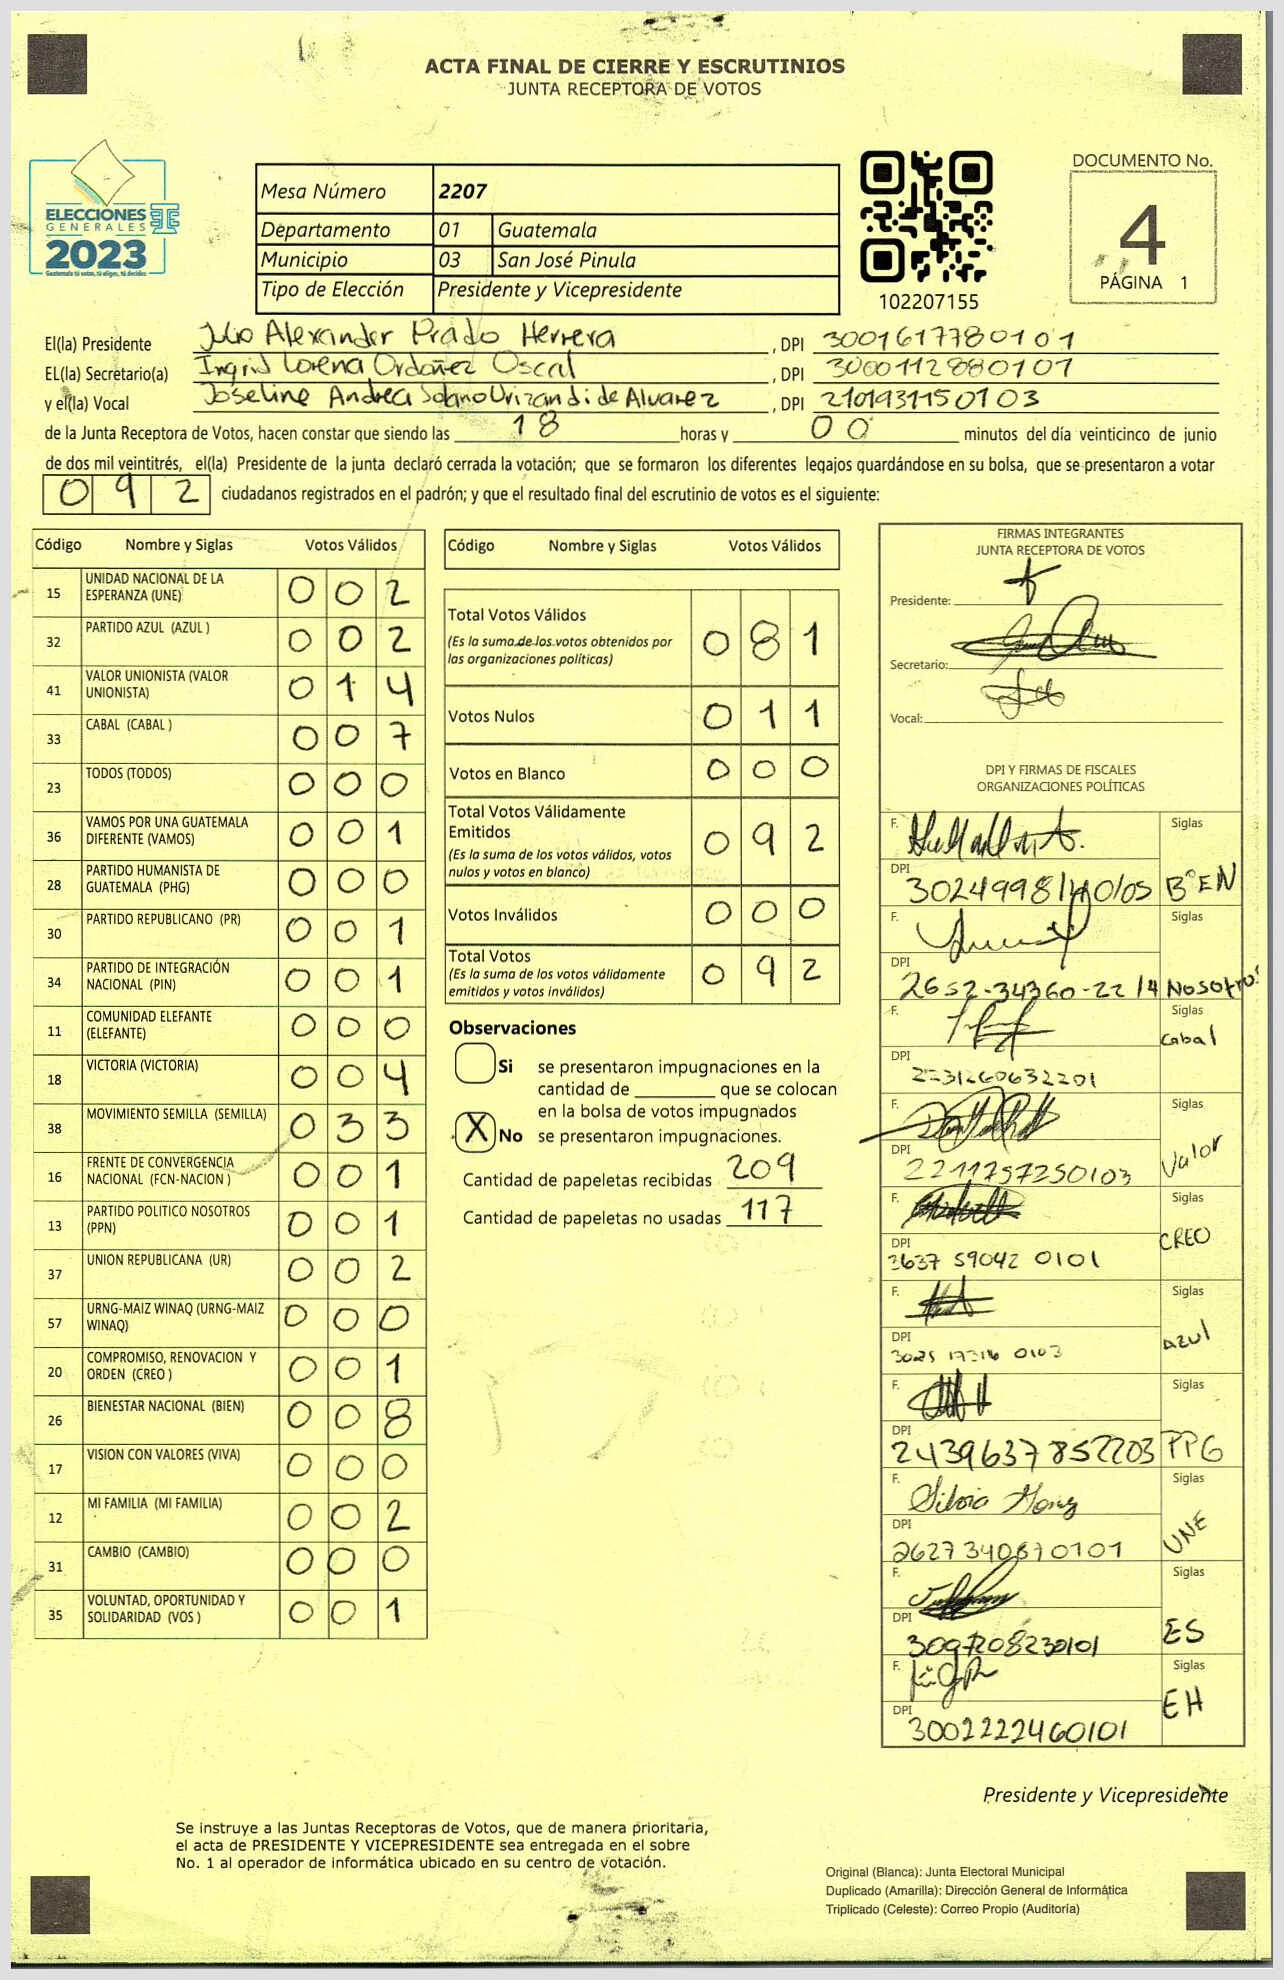 ACTA FINAL DE CIERRE Y ESCRUTINIOS
JUNTA RECEPTORA DE VOTOS
ELECCIONES
GENERALES
2023
Guatemala tú votas, tú eliges, tú decides
Mesa Número 2207
Departamento 01 Guatemala
Municipio 03 San José Pinula
Tipo de Elección Presidente y Vicepresidente
102207155
DOCUMENTO No.
4
PÁGINA 1
El(la) Presidente Julio Alexander Prado Herrera , DPI 3001617780101
EL(la) Secretario(a) Ingrid Lorena Ordoñez Oscal , DPI 3000112880101
y el(la) Vocal Joseline Andrea Solano Urizandi de Alvarez , DPI 2101931150103
de la Junta Receptora de Votos, hacen constar que siendo las 18 horas y 00 minutos del día veinticinco de junio
de dos mil veintitrés, el(la) Presidente de la junta declaró cerrada la votación; que se formaron los diferentes legajos guardándose en su bolsa, que se presentaron a votar
092 ciudadanos registrados en el padrón; y que el resultado final del escrutinio de votos es el siguiente:
Código Nombre y Siglas Votos Válidos
15 UNIDAD NACIONAL DE LA ESPERANZA (UNE) 002
32 PARTIDO AZUL (AZUL ) 002
41 VALOR UNIONISTA (VALOR UNIONISTA) 014
33 CABAL (CABAL ) 007
23 TODOS (TODOS) 000
36 VAMOS POR UNA GUATEMALA DIFERENTE (VAMOS) 001
28 PARTIDO HUMANISTA DE GUATEMALA (PHG) 000
30 PARTIDO REPUBLICANO (PR) 001
34 PARTIDO DE INTEGRACIÓN NACIONAL (PIN) 001
11 COMUNIDAD ELEFANTE (ELEFANTE) 000
18 VICTORIA (VICTORIA) 004
38 MOVIMIENTO SEMILLA (SEMILLA) 033
16 FRENTE DE CONVERGENCIA NACIONAL (FCN-NACION ) 001
13 PARTIDO POLITICO NOSOTROS (PPN) 001
37 UNION REPUBLICANA (UR) 002
57 URNG-MAIZ WINAQ (URNG-MAIZ WINAQ) 000
20 COMPROMISO, RENOVACION Y ORDEN (CREO ) 001
26 BIENESTAR NACIONAL (BIEN) 008
17 VISION CON VALORES (VIVA) 000
12 MI FAMILIA (MI FAMILIA) 002
31 CAMBIO (CAMBIO) 000
35 VOLUNTAD, OPORTUNIDAD Y SOLIDARIDAD (VOS ) 001
Código Nombre y Siglas Votos Válidos
Total Votos Válidos 081
(Es la suma de los votos obtenidos por
las organizaciones políticas)
Votos Nulos 011
Votos en Blanco 000
Total Votos Válidamente
Emitidos 092
(Es la suma de los votos válidos, votos
nulos y votos en blanco)
Votos Inválidos 000
Total Votos 092
(Es la suma de los votos válidamente
emitidos y votos inválidos)
Observaciones
Si se presentaron impugnaciones en la
cantidad de ________ que se colocan
en la bolsa de votos impugnados
X No se presentaron impugnaciones.
Cantidad de papeletas recibidas 209
Cantidad de papeletas no usadas 117
FIRMAS INTEGRANTES
JUNTA RECEPTORA DE VOTOS
Presidente:
Secretario:
Vocal:
DPI Y FIRMAS DE FISCALES
ORGANIZACIONES POLÍTICAS
F. Siglas
DPI B°EN
F. Siglas
DPI 2652-34360-2214 NOSOTROS
F. Siglas
DPI Cabal
F. Siglas
DPI 2211757250103 Valor
F. Siglas
DPI 3637 59042 0101 CREO
F. Siglas
DPI Azul
F. Siglas
DPI 2439637852203 PPG
F. Silvia Siglas
DPI 2627340870101 UNE
F. Siglas
DPI 3097208230101 ES
F. Siglas
DPI 3002222460101 EH
Presidente y Vicepresidente
Se instruye a las Juntas Receptoras de Votos, que de manera prioritaria,
el acta de PRESIDENTE Y VICEPRESIDENTE sea entregada en el sobre
No. 1 al operador de informática ubicado en su centro de votación.
Original (Blanca): Junta Electoral Municipal
Duplicado (Amarilla): Dirección General de Informática
Triplicado (Celeste): Correo Propio (Auditoría)